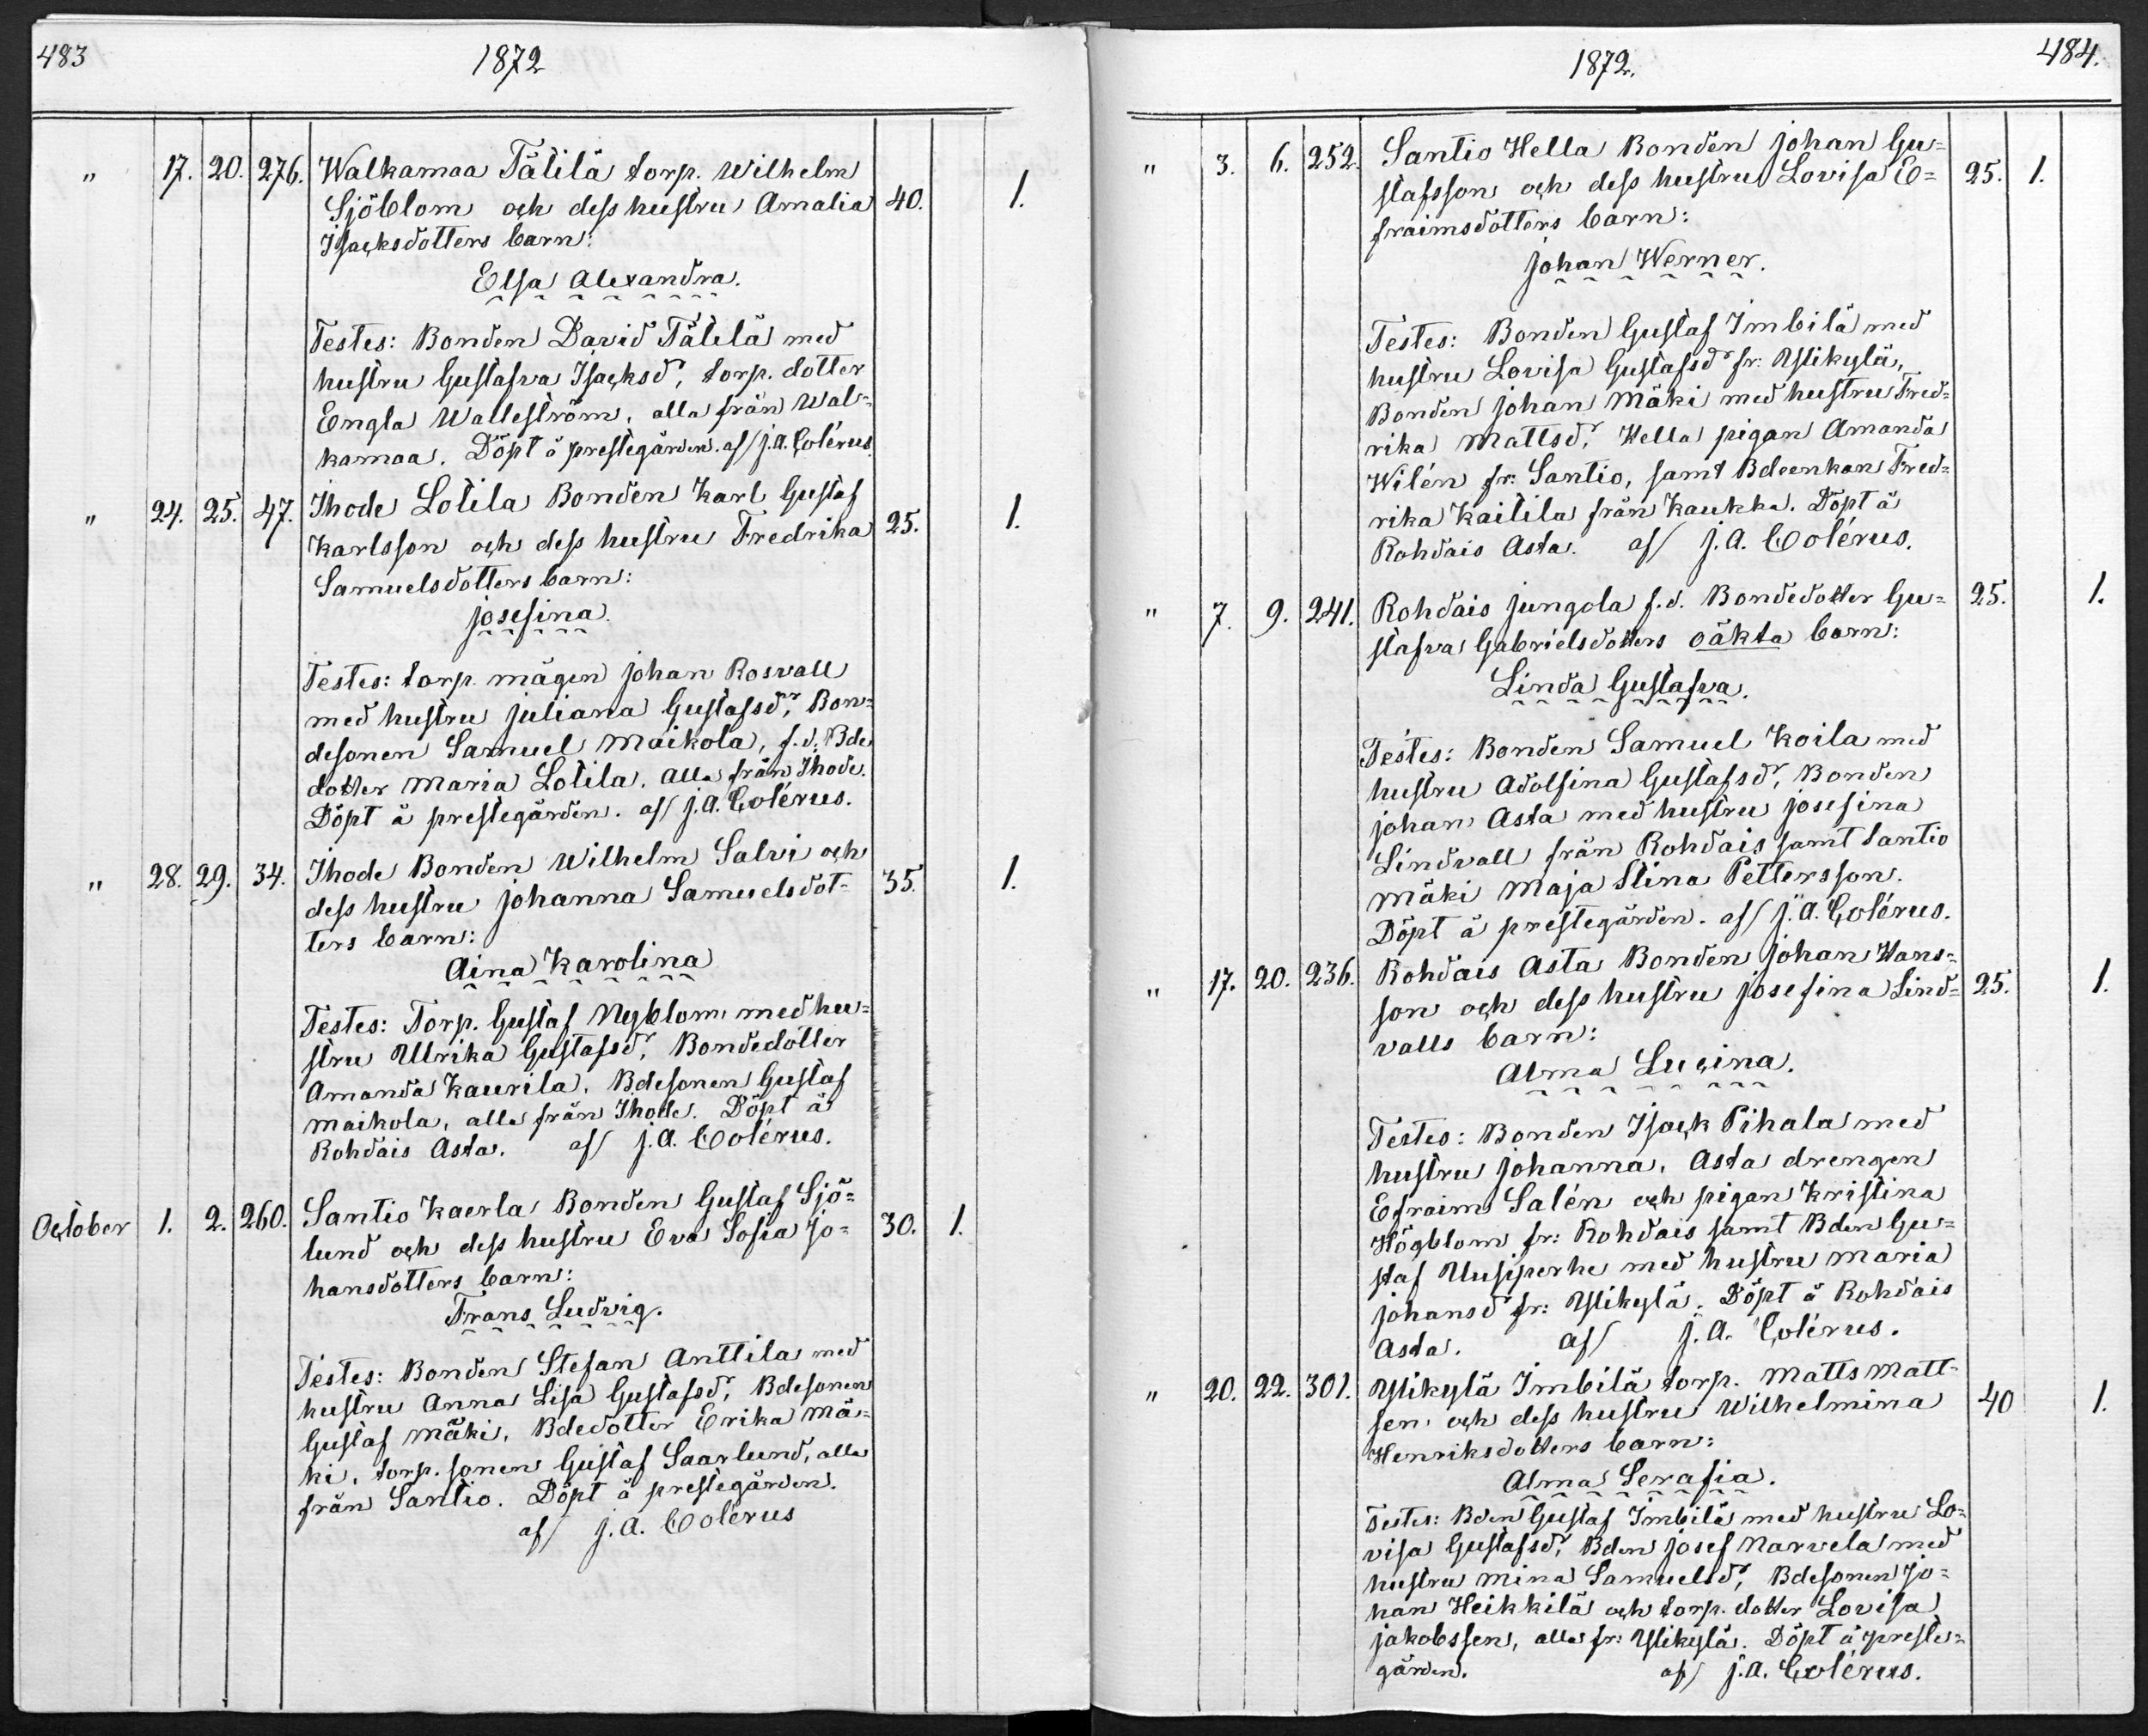 483
1872
" 17. 20. 276. Walkamaa Tälilä torp. Wilhelm
Sjöblom och dess hustru Amalia 40. 1.
Isacksdotters barn:
Elsa Alexandra.
Testes: Bonden David Tälilä med
hustru Gustafva Isacksdr, torp. dotter
Engla Walleström, alla från Wal=
kamaa. Döpt å prestegården. af J. A. Colérus.
" 24. 25. 47. Ihode Lolila Bonden Karl Gustaf
Karlsson och dess hustru Fredrika 25. 1.
Samuelsdotters barn:
Josefina.
Testes: torp. mågen Johan Rosvall
med hustru Juliana Gustafsdr, Bon=
desonen Samuel Maikola, f.d. Bde
dotter Maria Lolila. Alla från Ihode.
Döpt å prestegården. af J. A. Colérus.
" 28. 29. 34. Ihode Bonden Wilhelm Salvi och
dess hustru Johanna Samuelsdot= 35. 1.
ters barn:
Aina Karolina
Testes: Torp. Gustaf Nyblom med hu=
stru Ulrika Gustafsdr, Bondedotter
Amanda Kaurila, Bdesonen Gustaf
Maikola, alla från Ihode. Döpt å
Rohdais Asta. af J. A. Colérus.
October 1. 2. 260. Santio Kaerla Bonden Gustaf Sjö=
lund och dess hustru Eva Sofia Jo= 30. 1.
hansdotters barn:
Frans Ludvig.
Testes: Bonden Stefan Anttila med
hustru Anna Lisa Gustafsdr, Bdesonen
Gustaf Mäki, Bdedotter Erika Mä=
ki, torp. sonen Gustaf Saarlund, alla
från Santio. Döpt å prestegården.
af J. A. Colérus
1872.
484.
" 3. 6. 252. Santio Hella Bonden Johan Gu=
stafsson och dess hustru Lovisa E= 25. 1.
fraimsdotters barn:
Johan Werner.
Testes: Bonden Gustaf Imbilä med
hustru Lovisa Gustafsdr fr: Ylikylä,
Bonden Johan Mäki med hustru Fred=
rika Mattsdr, Hella pigan Amanda
Wilén fr: Santio, samt Bdeenkan Fred=
rika Kailila från Kaukka. Döpt å
Rohdais Asta. af J. A. Colérus.
" 7. 9. 241. Rohdais Jungola f.d. Bondedotter Gu= 25. 1.
stafva Gabrielsdotters oäkta barn:
Linda Gustafva.
Testes: Bonden Samuel Koila med
hustru Adolfina Gustafsdr, Bonden
Johan Asta med hustru Josefina
Lindvall från Rohdais samt Santio
Mäki Maja Stina Pettersson.
Döpt å prestegården. af J. A. Colérus.
" 17. 20. 236. Rohdais Asta Bonden Johan Hans=
son och dess hustru Josefina Lind= 25. 1.
valls barn:
Alma Lucina.
Testes: Bonden Isack Pihala med
hustru Johanna, Asta drengen
Efraim Salén och pigan Kristina
Högblom fr: Rohdais samt Bden Gu=
staf Uusiperhe med hustru Maria
Johansdr fr: Ylikylä. Döpt å Rohdais
Asta. af J. A. Colérus.
" 20. 22. 301. Ylikylä Imbilä torp. Matts Matt=
sen och dess hustru Wilhelmina 40 1.
Henriksdotters barn:
Alma Serafia.
Testes: Bden Gustaf Imbilä med hustru Lo=
visa Gustafsdr, Bden Josef Narvela med
hustru Mina Samuelsdr, Bdesonen Jo=
han Heikkilä och torp. dotter Lovisa
Jakobssen, alla fr: Ylikylä. Döpt å preste=
gården. af J. A. Colérus.